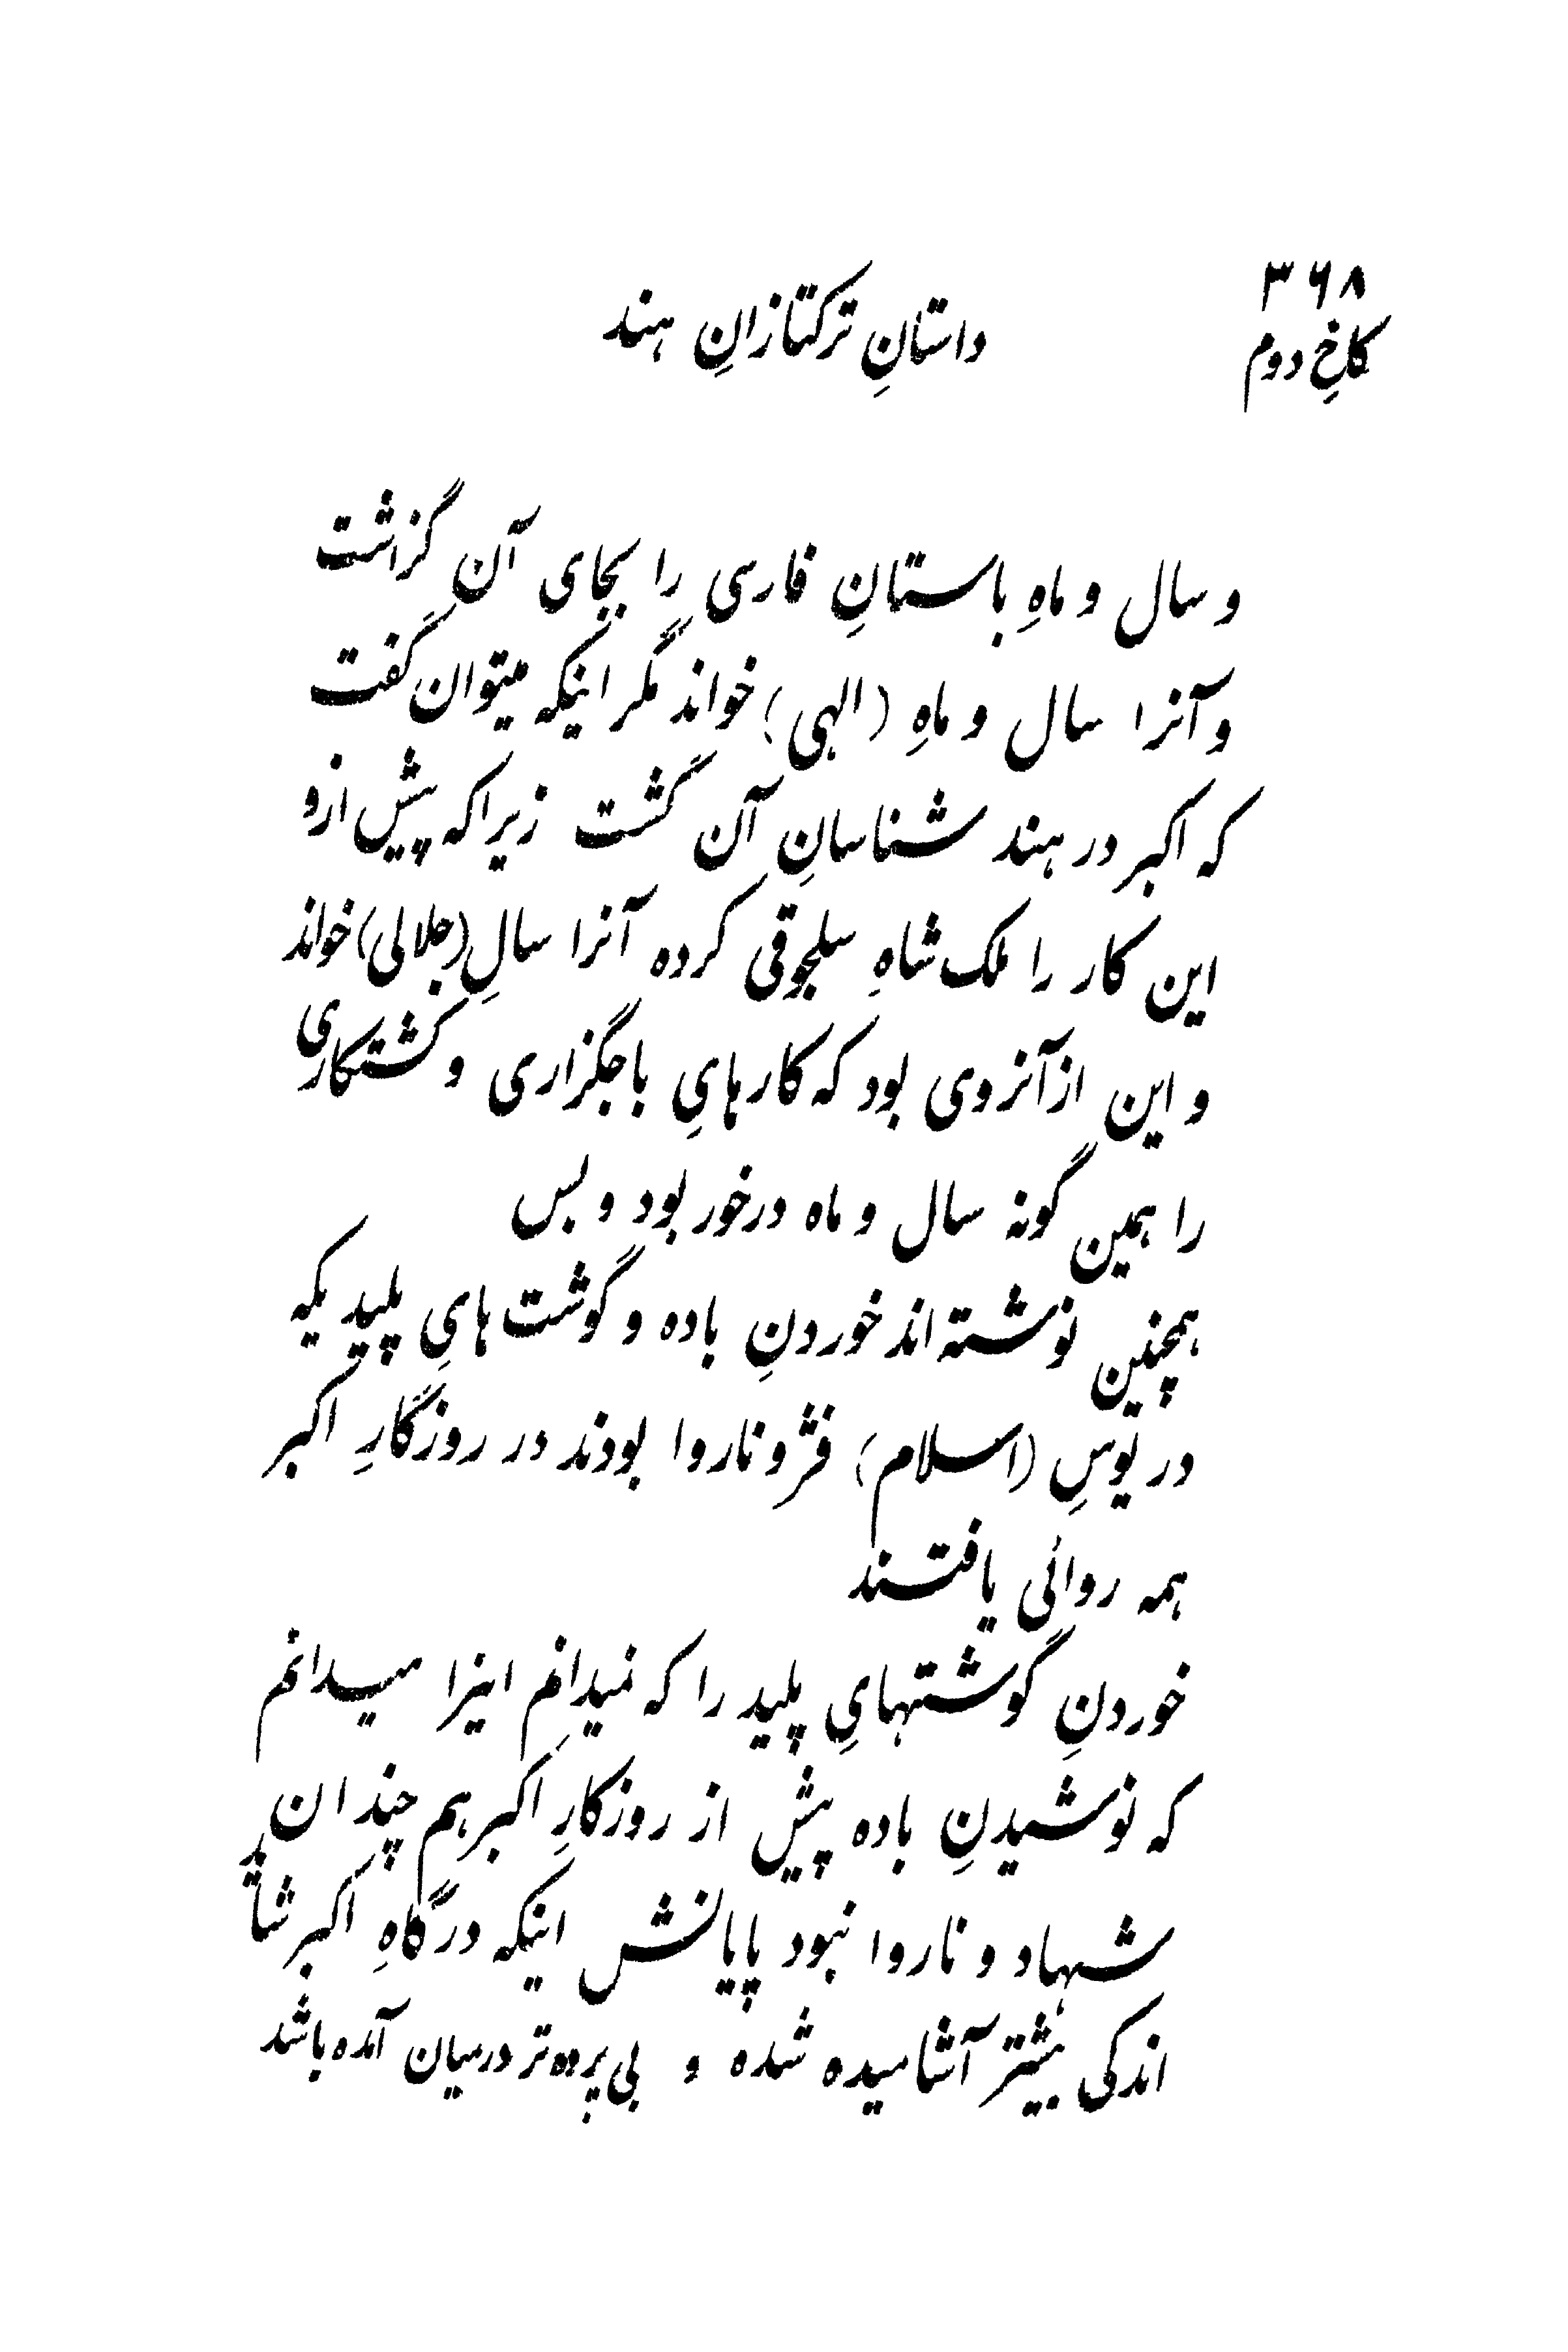 ۳۶۸
کاخِ دوم
داستانِ ترکتازانِ هند
و سال و ماهِ باستانِ فارسی را بجای آن گزاشت
و آنرا سال و ماهِ (الهی) خواند مگر اینکه میتوان گفت
که اکبر در هند شناسانِ آن گشت زیرا که پیش ازو
این کار را ملک شاهِ سلجوقی کرده آنرا سالِ (جلالی) خواند
و این از آنروی بود که کارهایِ باجگزاری و کشتکاری
را همین گونه سال و ماه درخور بود و بس
همچنین نوشته اند خوردنِ باده و گوشت هایِ پلیدیکه
در یوسِ (اسلام) فژ و ناروا بودند در روزگارِ اکبر
همه روائی یافتند
خوردنِ گوشتهایِ پلید را که نمیدانم اینرا میدانم
که نوشیدنِ باده پیش از روزکارِ اکبر هم چندان
شهاد و ناروا نبود پایانش اینکه درگاهِ اکبر شاید
اندکی بیشتر آشامیده شده و بی پرده تر درمیان آمده باشد